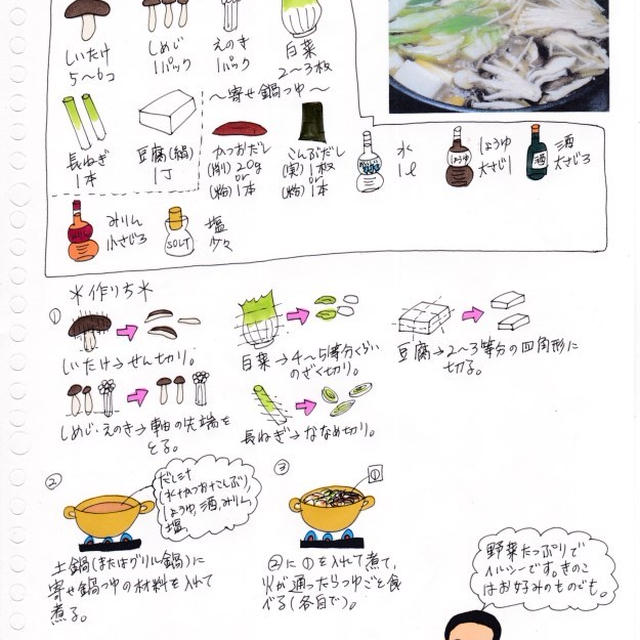 しいたけ
5〜6コ
しめじ
1パック
えのき
1パック
白菜
2〜3枚
〜寄せ鍋つゆ〜
長ねぎ
1本
豆腐(絹)
1丁
かつおだし
(削)20g
or
(粉)1本
こんぶだし
(実)1枚
or
(粉)1本
水
1ℓ
しょうゆ
しょうゆ
大さじ1
酒
酒
大さじ3
みりん
小さじ3
SOLT
塩
少々
*作り方*
①
しいたけ→せん切り。
白菜→4〜5等分くらい
のざく切り。
豆腐→2〜3等分の四角形に
切る。
しめじ・えのき→軸の先端を
とる。
長ねぎ→ななめ切り。
②
だし汁
(水+かつお+こんぶ),
しょうゆ,酒,みりん,
塩,
土鍋(またはグリル鍋)に
寄せ鍋つゆの材料を入れて
煮る。
③
①
②に①を入れて煮て,
火が通ったらつゆごと食
べる(各自で)。
野菜たっぷりで
ヘルシーです。きのこ
はお好みのものでも。